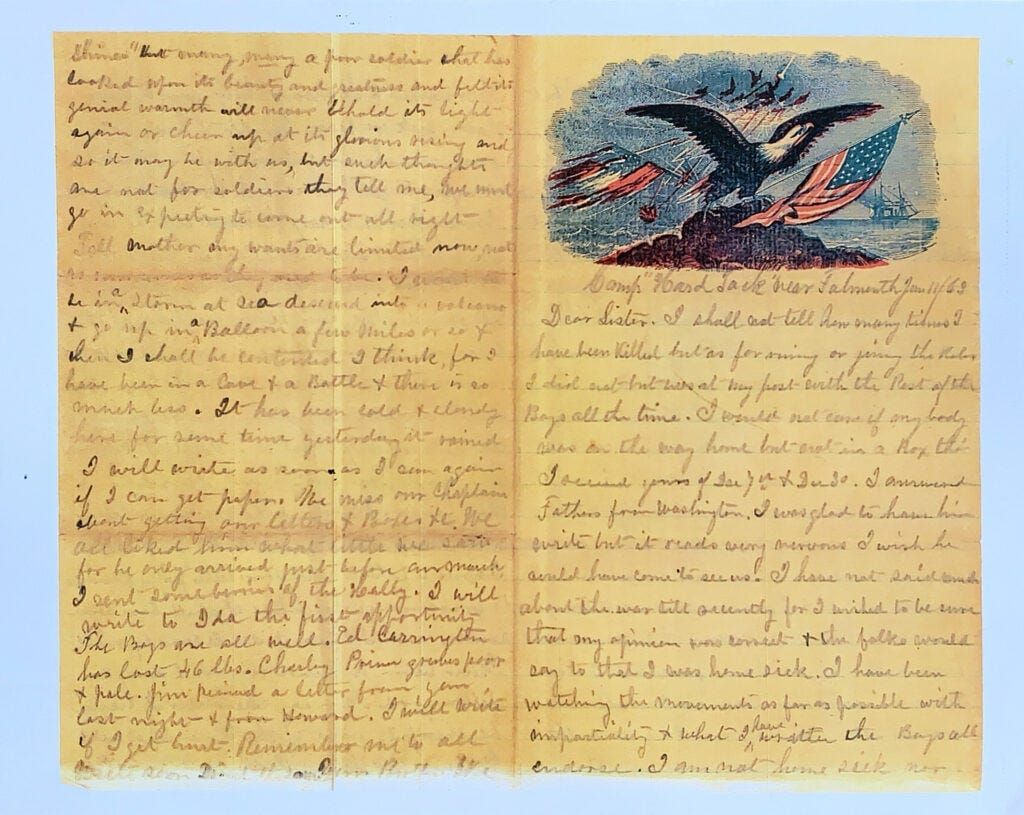 Shines" but many, many a poor soldier that has
looked upon its beauty and greatness and felt its
genial warmth will never behold its light
again or cheer up at its glorious rising and
so it may be with us, but such thoughts
are not for soldiers they tell me, we must
go in expecting to come out all right
Tell mother my wants are limited now, not
as numerous as they used to be. I want to
be in a Storm at Sea descend into a volcano
& go up in a Balloon a few miles or so &
then I shall be contented I think, for I
have been in a Cave & a Battle & there is so
much less. It has been cold & cloudy
here for some time yesterday it rained
I will write as soon as I can again
if I can get paper. We miss our Chaplain
about getting our letters & Boxes &c. We
all liked him what little we saw
for he only arrived just before our march
I sent some berries of the Holly. I will
write to Ida the first opportunity
The Boys are all well. Ed Carrington
has lost 46 lbs. Charley grows poor
& pale. Jim a letter from
last night & from Howard. I will write
if I get hurt. Remember me to all
Write soon
Camp "Hard Tack" near Falmouth Jan 63
Dear Sister. I shall not tell how many times I
have been Killed but as for runing or joining the
I did not but was at my post with the Rest of the
Boys all the time. I would not care if my body
was on the way home but not in a Box tho
I received yours of Dec 7th & Dec 30. I answered
Fathers from Washington. I was glad to have him
write but it reads very nervous I wish he
could have come to see us. I have not said much
about the war till recently for I wished to be sure
that my opinion was correct & the folks would
say to that I was home sick. I have been
watching the movements as far as possible with
impartiality & what I have written the Boys all
endorse. I am not home sick nor